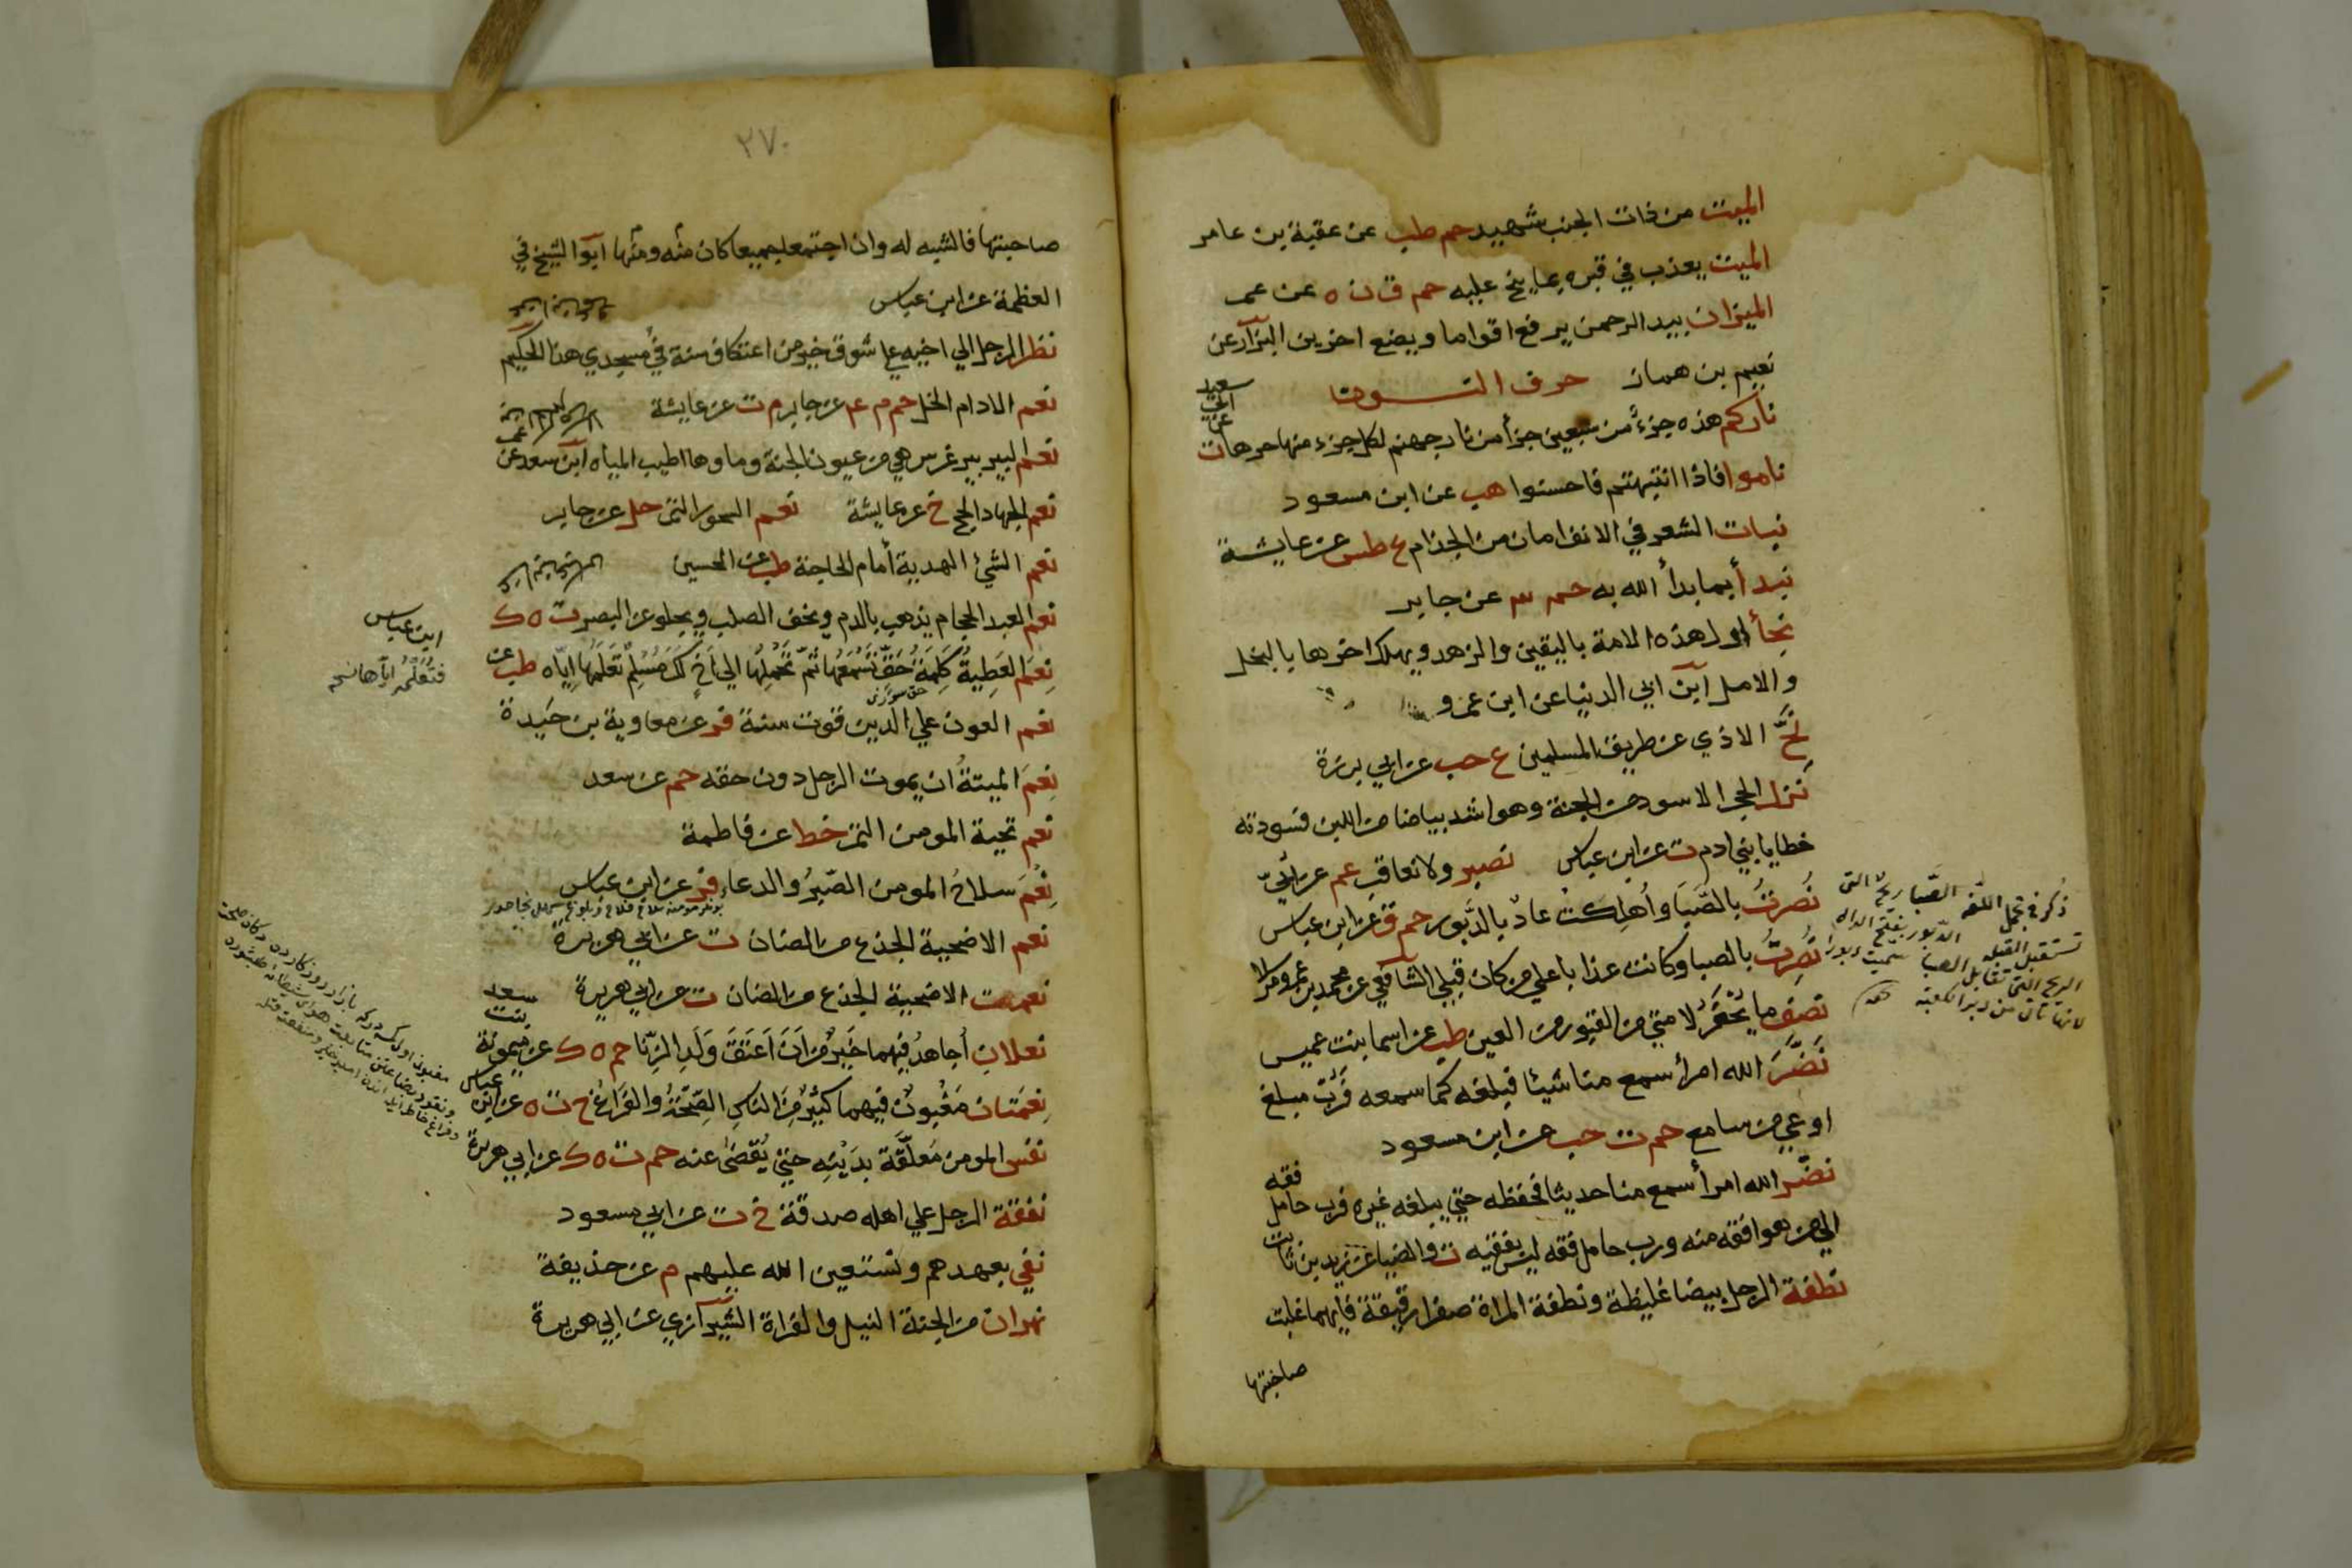 الميت من ذات الجنب شهيد حم طب عن عقبة بن عامر
الميت يعذب في قبره بما نيح عليه حم ق ن ه عن عمر
الميزان بيد الرحمن يرفع اقواما ويضع اخرين البزار عن
نعيم بن همار حرف النون
ناركم هذه جزء من سبعين جزأ من نار جهنم لكل جزء منها حرها ت
عن ابي سعيد
ناموا فاذا انتبهتم فاحسنوا هب عن ابن مسعود
نبات الشعر في الانف امان من الجذام ع طس عن عايشة
نبدأ بما بدأ الله به حم ٣ عن جابر
نجأ اول هذه الامة باليقين والزهد ويهلك اخرها بالبخل
والامل ابن ابي الدنيا عن ابن عمرو
نَحِّ الاذي عن طريق المسلمين ع حب عن ابي برزة
نزل الحجر الاسود من الجنة وهو اشد بياضا من اللبن فسودته
خطايا بني ادم ت عن ابن عباس نصبر ولا نعاقب عم عن أبيّ
نُصرتُ بالصَّبَا وأهلكت عادٌ بالدَّبور حم ق عن ابن عباس
نُصِرتُ بالصبا وكانت عذابا علي من كان قبلي الشافعي عن محمد بن عمرو مرسلا
نصف ما يُحْفَرُ لامتي من القبور من العين طب عن اسما بنت عميس
نَضَّرَ الله امرأ سمع منا شيئا فبلغه كما سمعه فربّ مبلغ
اوعي من سامع حم ت حب عن ابن مسعود
نضّر الله امرأ سمع منا حديثا فحفظه حتي يبلغه غيره فرب حامل فقه
الي من هو افقه منه ورب حامل فقه ليس بفقيه ت والضيا عن زيد بن ثابت
نطفة الرجل بيضا غليظة ونطفة المراة صفرا رقيقة فايهما غلبت
صاحبتها
ذكر في مجمل اللغه الصَّبا ريحٌ التى
تستقبل القبله الدَّبور بفتح الدال
الريح التى تقابل الصبا سميت دبورا
لانها تأتى من دبر الكعبة
٢٧٠
صاحبتها فالشبه له وان اجتمعا جميعا كان منه ومنها ابو الشيخ في
العظمة عن ابن عباس
نظر الرجل الي اخيه علي شوق خير من اعتكاف سنة في مسجدي هذا الحكيم
نعم الادام الخل حم م عم عن جابر م ت عن عايشة
نعم البير بير غرس هي من عيون الجنة وماوها اطيب المياه ابن سعد عن
نعم الجهاد الحج خ عن عايشة نعم السحور التمر حل عن جابر
نعم الشئ الهدية أمام الحاجة طب عن الحسين
نعم العبد الحجام يذهب بالدم ويخف الصلب ويجلو عن البصر ت ه ك
ابن عباس
نِعمَ العَطِيةُ كَلِمَةُ حَقٍّ تَسمَعُها ثمّ تَحمِلُها الي اَخٍ لَكَ مُسْلِمٍ تَعَلمُها اِيّاه طب عن
فتُعلّمه اياها نسخه
نعم العون علي الدين قوت سنة فر عن معاوية بن حَيدة
نِعمَ الميتةُ ان يموت الرجل دون حقه حم عن سعد
نعم تحية المومن التمر خط عن فاطمة
نِعْمَ سلاحُ المومن الصّبرُ والدعاء فر عن ابن عباس
نعم الاضحية الجذع من الضان ت عن ابي هريرة
نعمت الاضحية الجذع من الضان ت عن ابي هريرة
نعلان أجاهدُ فيهما خَيرٌ مِن اَن اَعتَقَ وَلَدَ الزِّنا حم ه ك عن ميمونة
بنت سعد
نِعْمَتان مَغْبُونٌ فيهما كثيرٌ مِن الناسِ الصِّحّةُ والفَراغُ خ ت ه عن ابن عباس
نفس المومن مُعلّقَة بدَيْنِه حتي يُقضٰى عنه حم ت ه ك عن ابي هريرة
نفقة الرجل علي اهله صدقة خ ت عن ابي مسعود
نفي بعهدهم ونستعين الله عليهم م عن حذيفة
نهران من الجنة النيل والفراة الشيرازي عن ابي هريرة